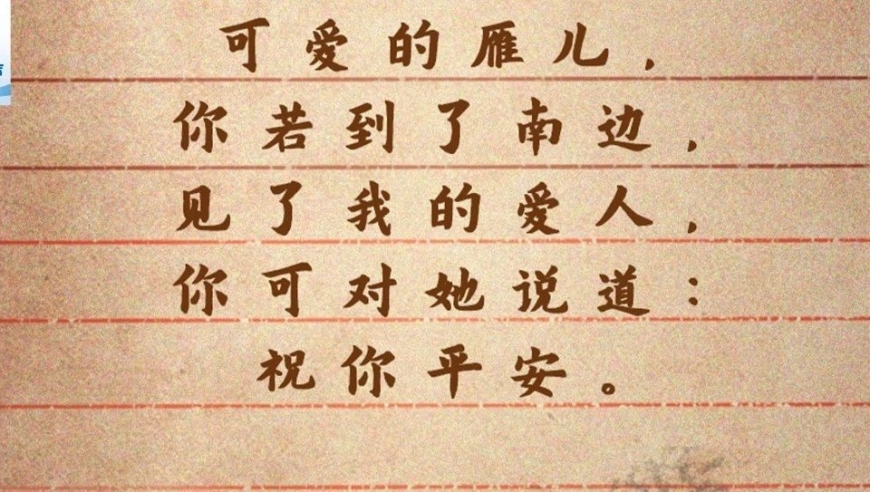 可爱的雁儿，
你若到了南边，
见了我的爱人，
你可对她说道：
祝你平安。